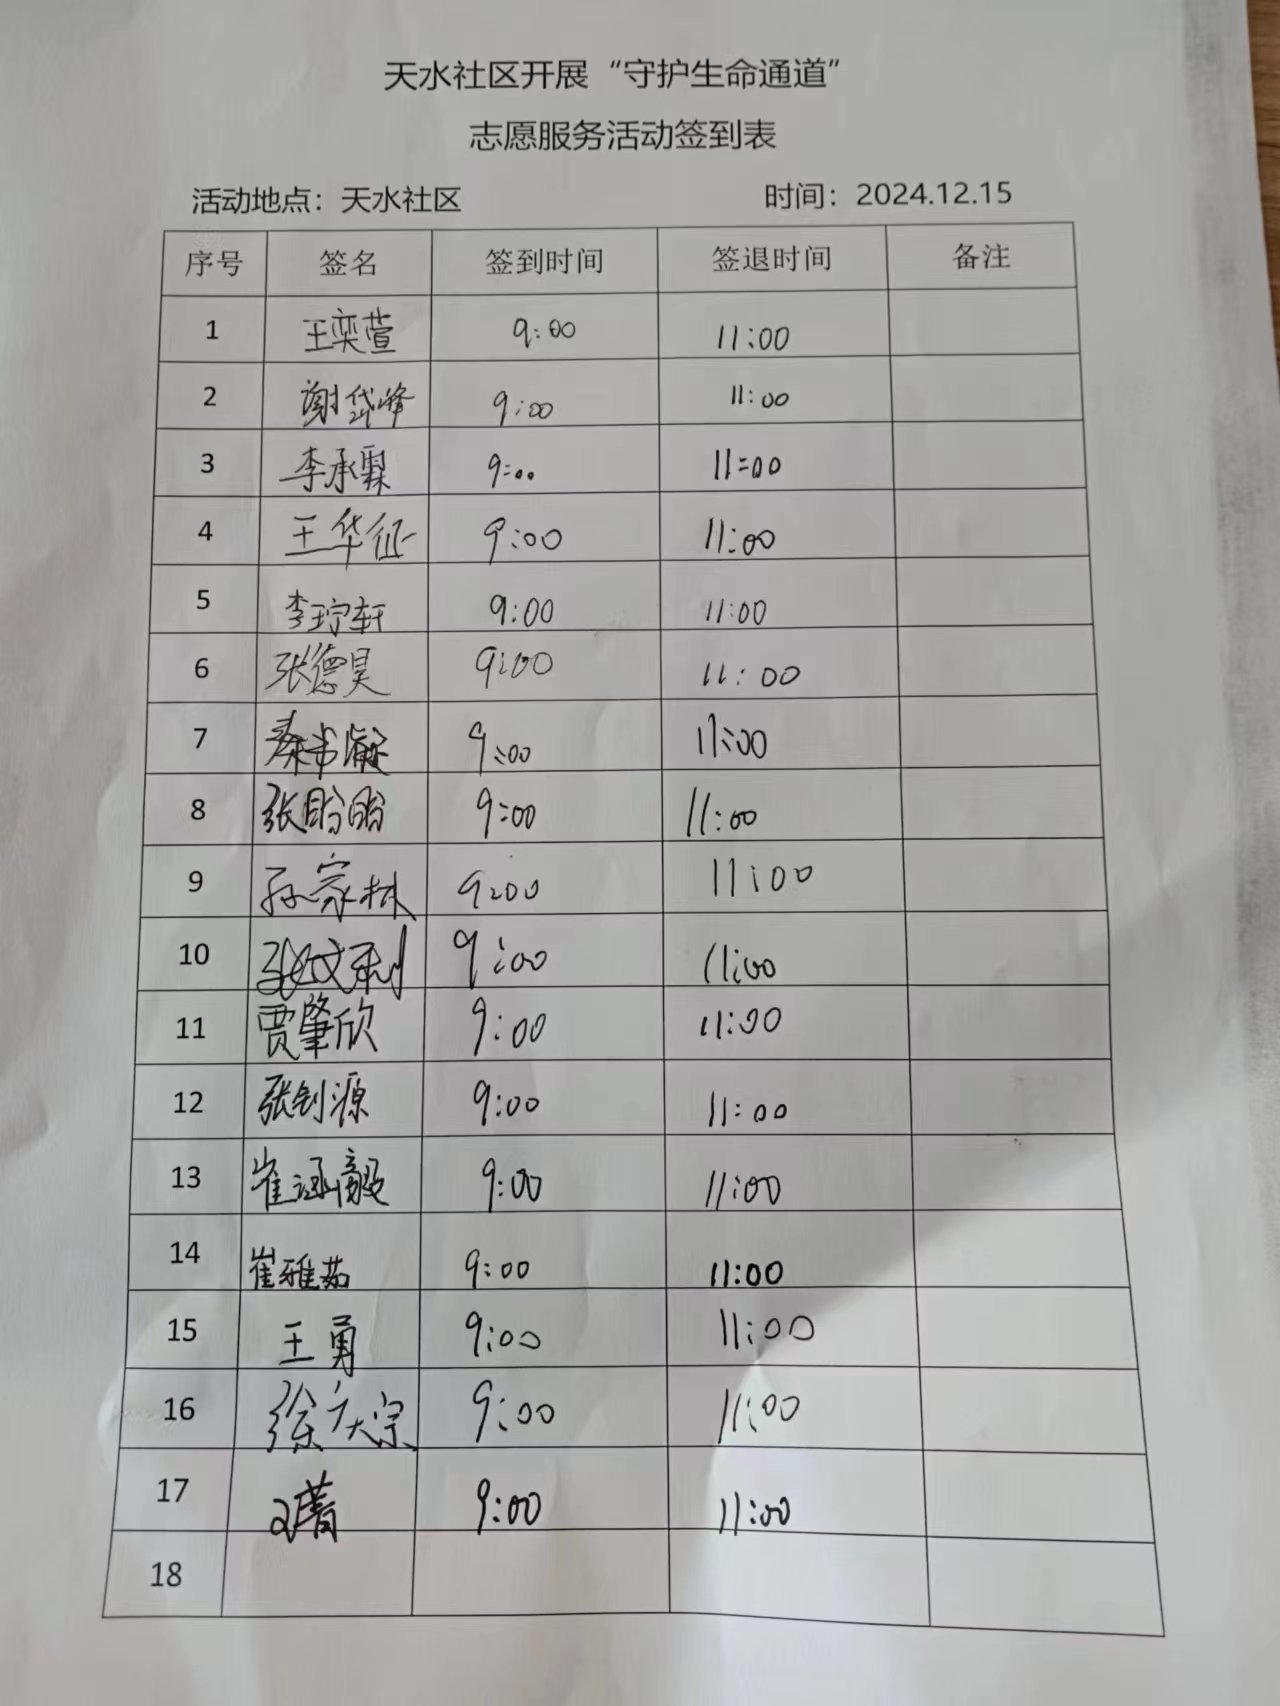 天水社区开展“守护生命通道”
志愿服务活动签到表
活动地点：天水社区 时间：2024.12.15
序号 签名 签到时间 签退时间 备注
1 王奕萱 9:00 11:00
2 谢岱峰 9:00 11:00
3 李承霖 9:00 11:00
4 王华征 9:00 11:00
5 李柠轩 9:00 11:00
6 张德昊 9:00 11:00
7 秦书凝 9:00 11:00
8 张盼盼 9:00 11:00
9 孙家林 9:00 11:00
10 张文利 9:00 11:00
11 贾肇欣 9:00 11:00
12 张钊源 9:00 11:00
13 崔涵毅 9:00 11:00
14 崔雅茹 9:00 11:00
15 王勇 9:00 11:00
16 徐广宗 9:00 11:00
17 9:00 11:00
18